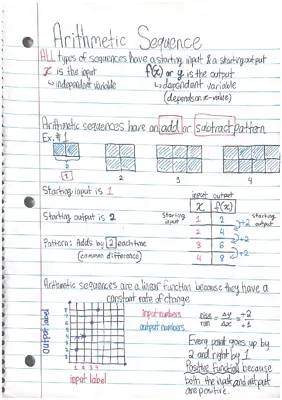 Arithmetic Sequence
ALL Types of sequences have a starting input & a starting output
x is the input
f(x) or y is the output
↳ independent variable
↳ dependent variable
(depends on x-value)
Arithmetic sequences have an add or subtract pattern
Ex. #1
1
2
3
4
Starting input is 1
input output
x f(x)
Starting output is 2
starting input
1 2
starting output
2 4
+2
3 6
+2
4 8
+2
Patterns Adds by 2 each time
(common difference)
Arithmetic sequences are a linear function because they have a
constant rate of change
input numbers
output numbers
rise/run = Δy/Δx = +2/+1
Every point goes up by
2 and right by 1
Positive function because
both the input and output
are positive.
1 2 3 4
input label